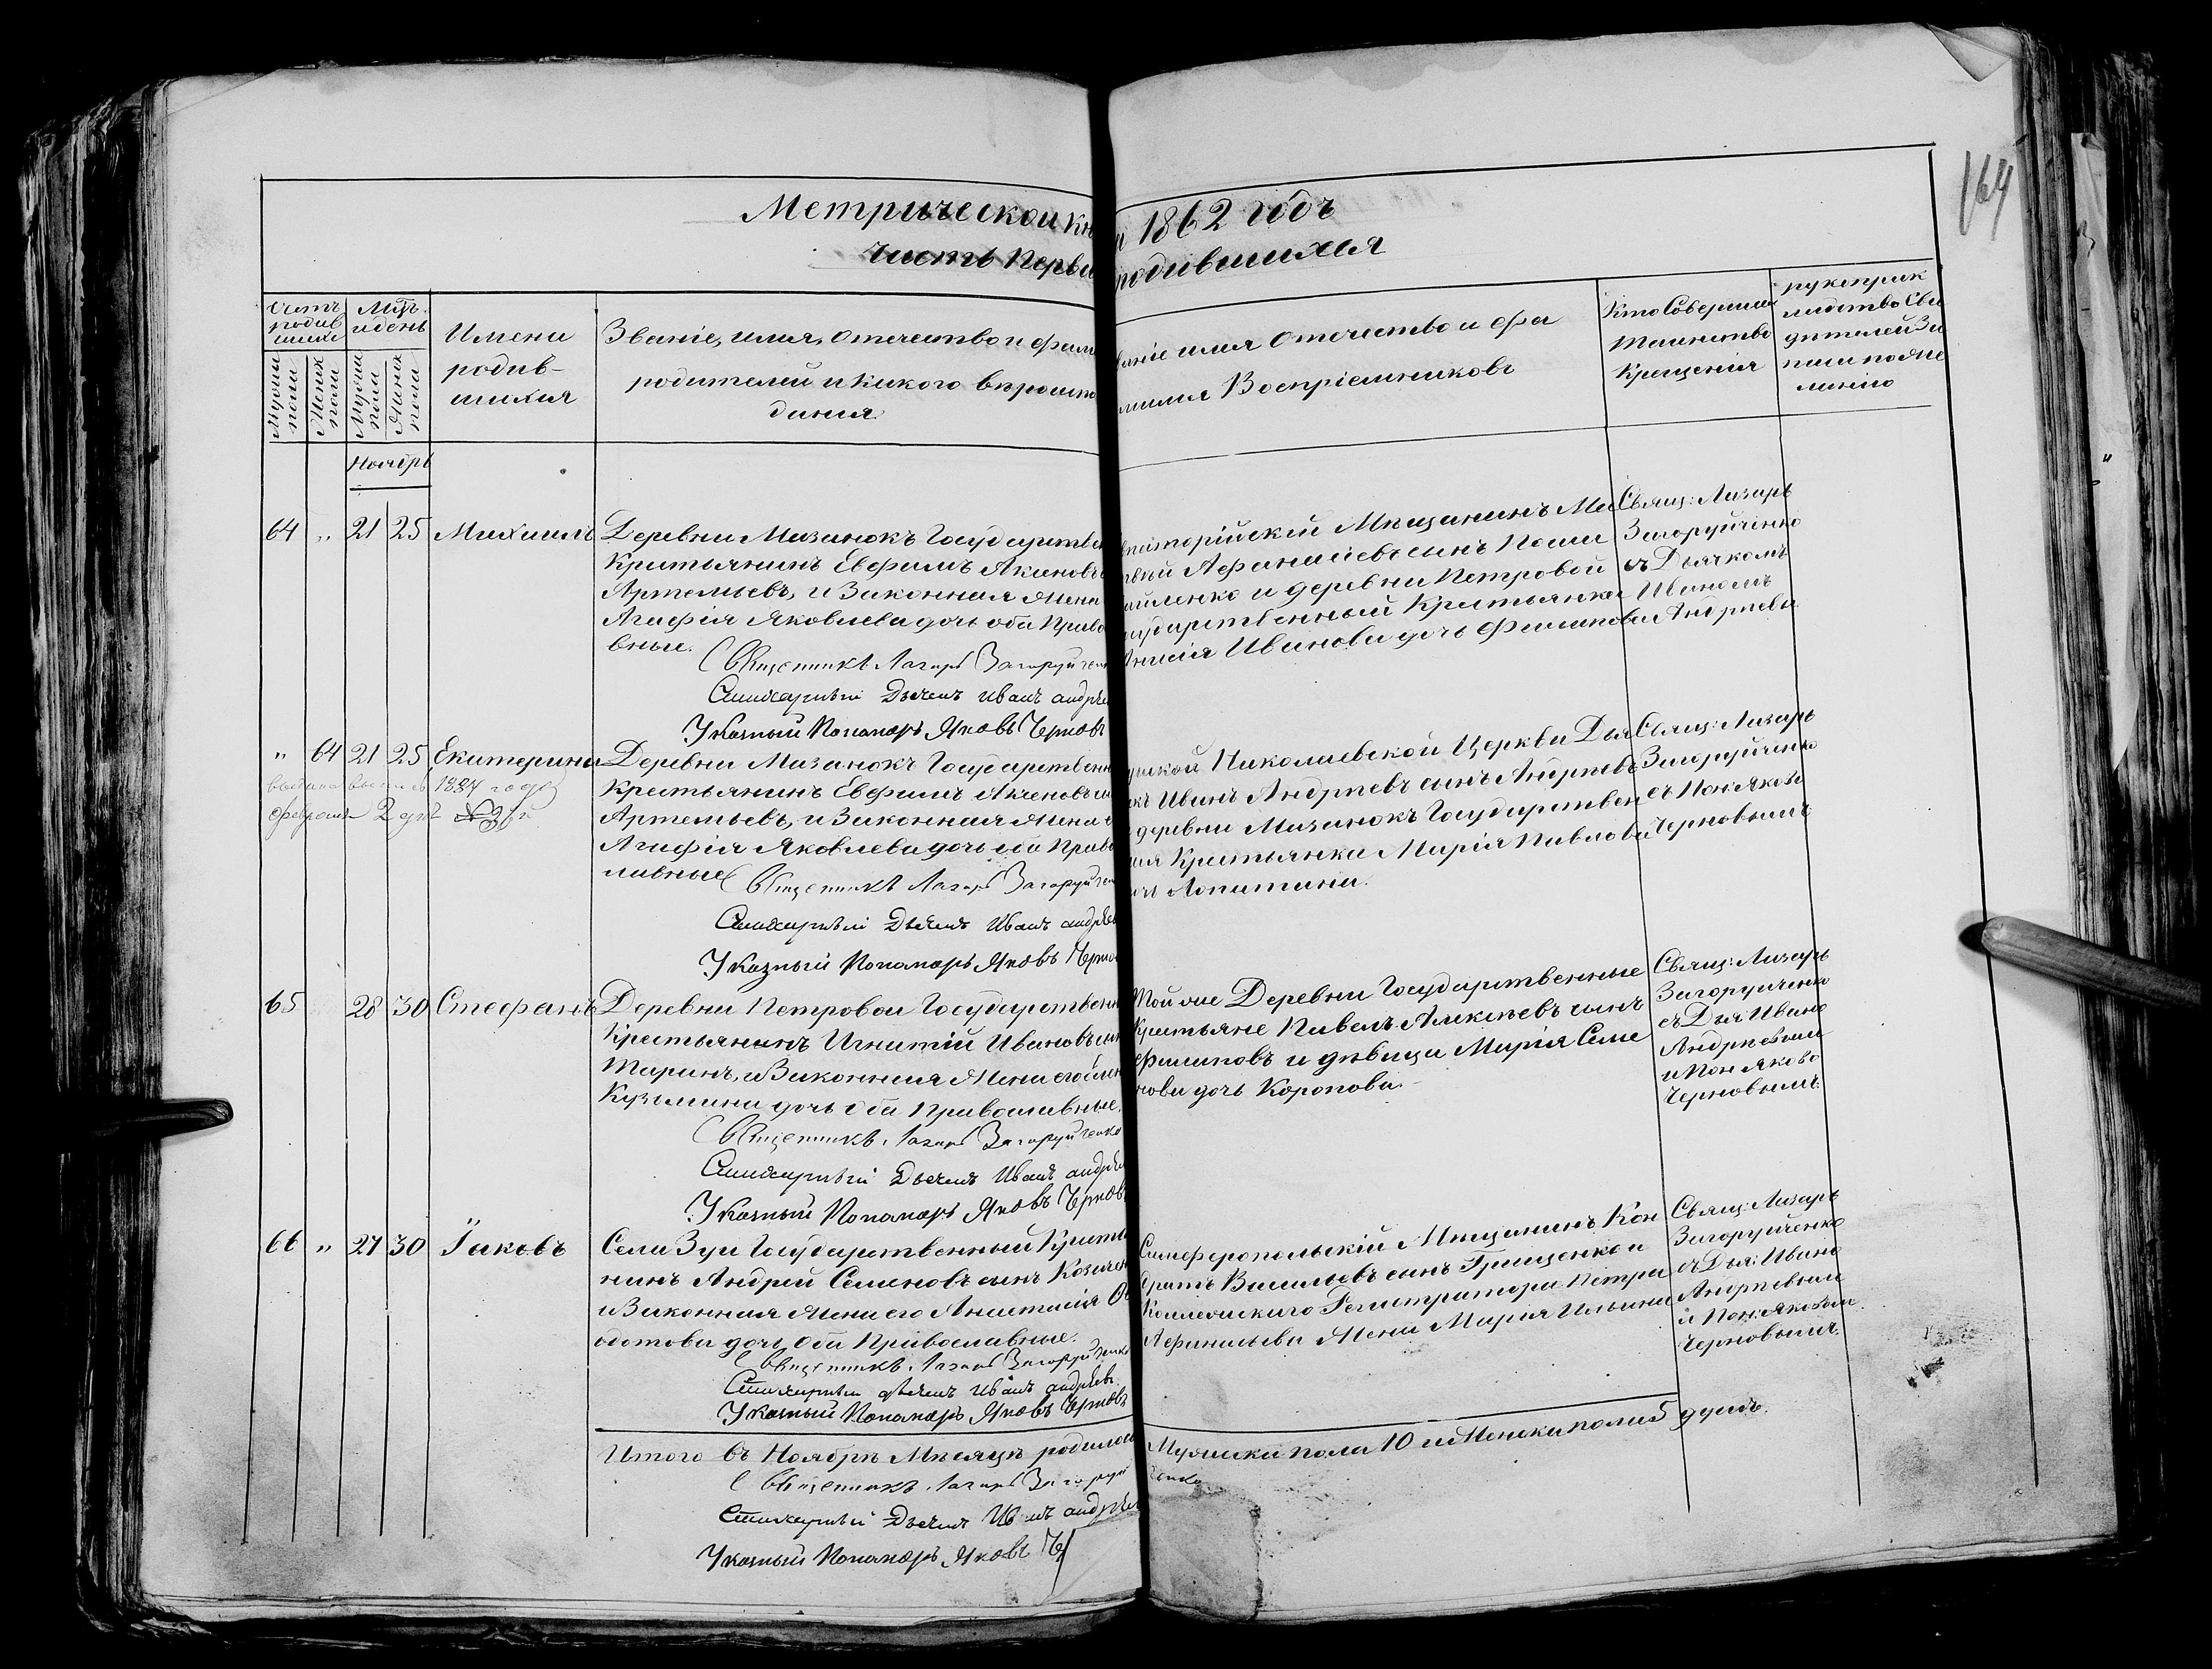 164
Метрической кн
и 1862 годъ
часть перва
родившихся
Счетъ родив шихся
Мужеска пола
Женск пола
Мѣцъ и день
Мужска пола
Женск пола
Имена
родив-
шихся
Званіе, имя, отечество и фами
родителей и какого вѣроиспо
данія
Званіе имя отечество и фа
милія Воспріемниковъ
Кто Совершал
Таинство
Крещенія
рукоприк
ладство Сви
дѣтелей За
писи по же
ланію
Ноябрь
64 " 21 25 Михаилъ
Деревни Мазанокъ Государствен
Крестьянинъ Евфимъ Акимовъ
Артемьевъ, и Законная жена
Агафія Яковлева дочь оба Право
вные.
Священникъ Лазарь Загоруйченко
Стихарный Дьячекъ Иванъ Андрѣев
Указный Пономарь Яковъ Чернов
впаторійскій Мѣщанинъ Ма
твѣй Афанасіевъ сынъ
и деревни Петровой
сударственный Крестьянка
Анисія Иванова дочь Филипова
Свящ: Лазарь
Загоруйченко
съ Дьячкомъ
Иваномъ
Андреевы
" 64 21 25 Екатерина
выдана выпись 1884 года
февраля 2 дня № 9
Деревни Мазанокъ Государственн
Крестьянинъ Евфимъ Акимовъ
Артемьевъ, и Законная жена
Агафія Яковлева дочь оба Право
славные
Священникъ Лазарь Загоруйчен
Стихарный Дьячекъ Иванъ Андрѣев
Указный Пономарь Яковъ Черно
Николаевской Церкви Дья
къ Иванъ Андреевъ сынъ Андреевъ
деревни Мазанокъ Государствен
ная Крестьянка Марія Павлова
чь Лопатина.
Свящ: Лазарь
Загоруйченко
съ Пон: Яково
Черновымъ
65 28 30 Стефанъ
Деревни Петровой Государственн
Крестьянинъ Игнатій Ивановъ сын
Таринъ, и Законная Жена его
Кузьмина дочь оба Православные.
Священникъ Лазарь Загоруйченко
Стихарный Дьячекъ Иванъ Андрѣев
Указный Пономарь Яковъ Чернов
Той же Деревни Государственные
Крестьяне Павелъ Алексѣевъ сынъ
Филиповъ и дѣвица Марія Семе
нова дочь Коропова.
Свящ: Лазарь
Загоруйченко
съ Дья: Ивано
Андреевым
и Пон Яково
Черновымъ.
66 " 27 30 Іаковъ
Села Зуи Государственный Кресть
нинъ Андрей Семеновъ сынъ Козачен
и Законная Жена его Анастасія
дотова дочь Оба Православные.
Священникъ Лазарь Загоруйченко
Стихарный Дьячекъ Иванъ Андрѣевъ
Указный Пономарь Яковъ Черновъ
Симферопольскій Мѣщанинъ Кон
дратъ Васильевъ сынъ Грищенко и
Коллежскаго Регистратора Петра
Афанасьева Жена Марія Ильина
Свящ: Лазарь
Загоруйченко
съ Дья: Ивано
Андреевым
и Пон: Яковом
Черновымъ.
Итого въ Ноябрѣ Мѣсяцѣ родилось
Мужска пола 10 и Женска пола 5 душъ.
Священникъ Лазарь Загоруй
ченко
Стихарный Дьячекъ Иванъ Андрѣев
Указный Пономарь Яковъ Че